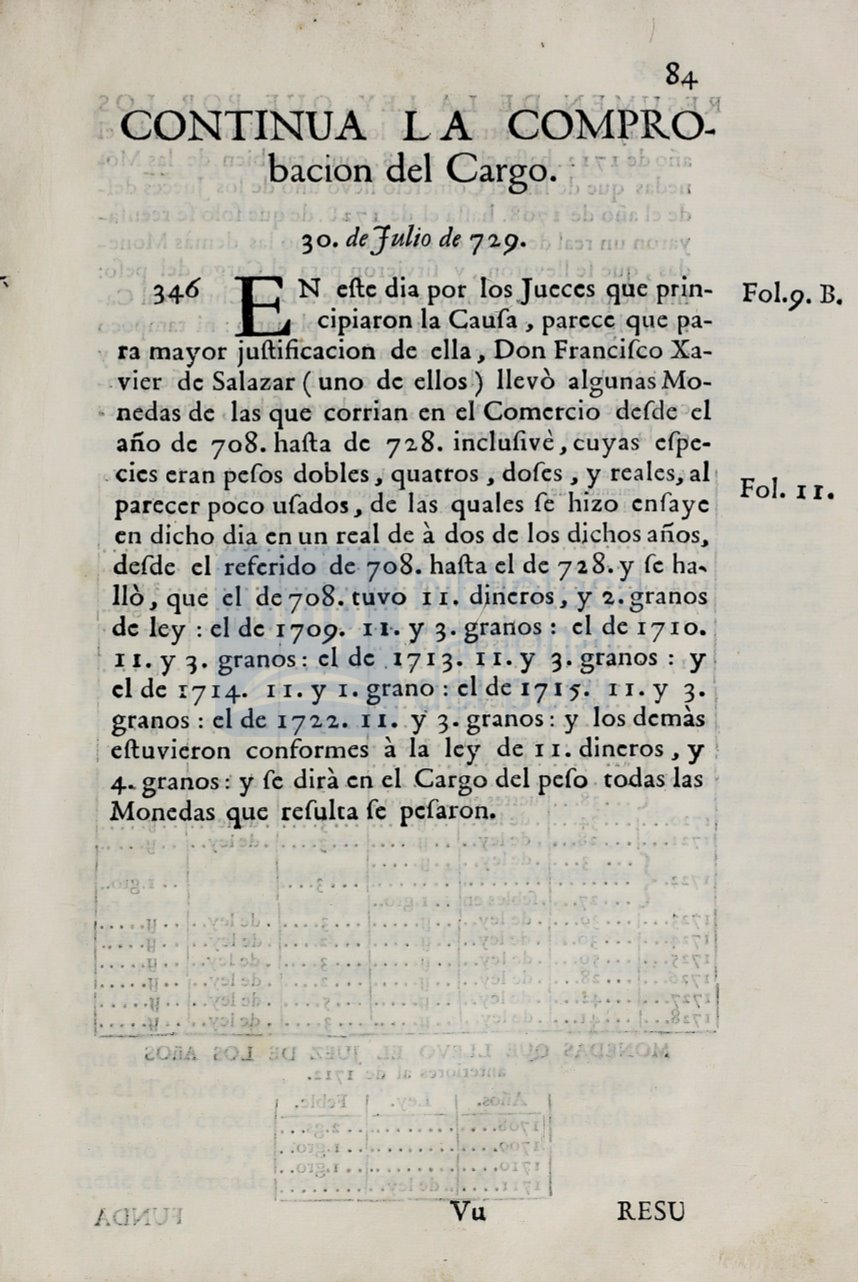 84
CONTINUA LA COMPRO-
bacion del Cargo.
30. de Julio de 729.
346 EN eſte dia por los Jueces que prin- Fol.9. B.
cipiaron la Cauſa, parece que pa-
ra mayor juſtificacion de ella, Don Franciſco Xa-
vier de Salazar (uno de ellos) llevò algunas Mo-
nedas de las que corrian en el Comercio deſde el
año de 708. haſta de 728. incluſivè, cuyas eſpe-
cies eran peſos dobles, quatros, doſes, y reales, al
parecer poco uſados, de las quales ſe hizo enſaye Fol. 11.
en dicho dia en un real de à dos de los dichos años,
deſde el referido de 708. haſta el de 728. y ſe ha-
llò, que el de 708. tuvo 11. dineros, y 2. granos
de ley : el de 1709. 11. y 3. granos : el de 1710.
11. y 3. granos : el de 1713. 11. y 3. granos : y
el de 1714. 11. y 1. grano : el de 1715. 11. y 3.
granos : el de 1722. 11. y 3. granos : y los demàs
eſtuvieron conformes à la ley de 11. dineros, y
4. granos : y ſe dirà en el Cargo del peſo todas las
Monedas que reſulta ſe peſaron.
Vu RESU